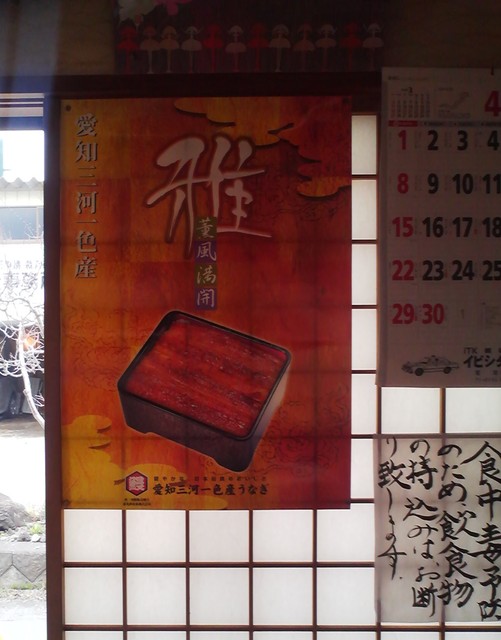 愛知三河一色産
雅
薫風満開
愛知三河一色産うなぎ
4
1 2 3 4
8 9 10 11
15 16 17 18
22 23 24 25
29 30
イビシ
食中毒予防
のため飲食物
の持込みはお断
り致します。